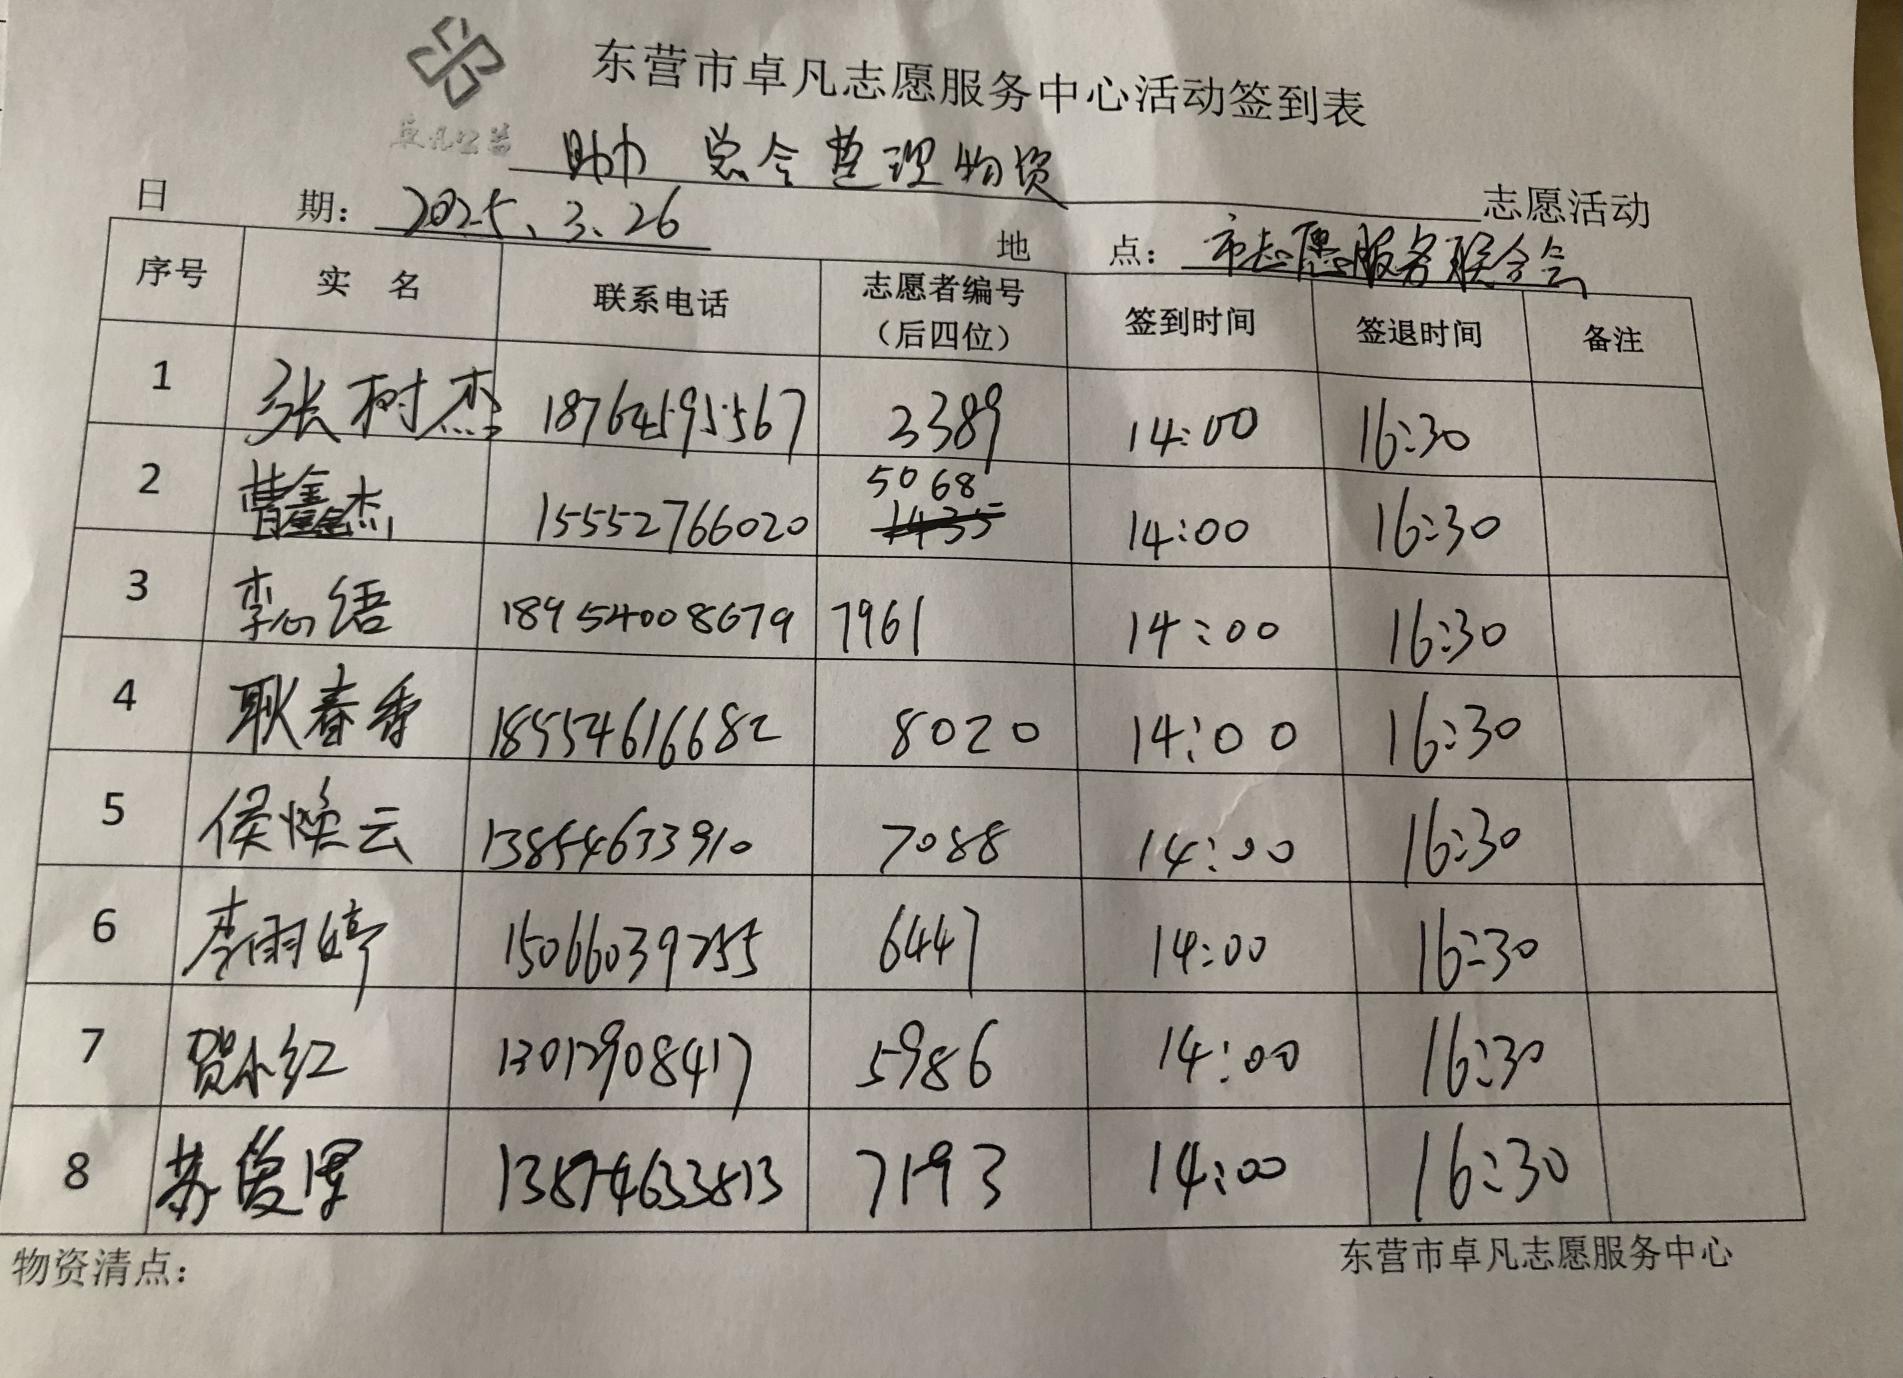 卓凡公益
东营市卓凡志愿服务中心活动签到表
助力 总会整理物资 志愿活动
日 期：2025、3、26 地 点：市志愿服务联合会
序号 实 名 联系电话 志愿者编号（后四位） 签到时间 签退时间 备注
1 张树杰 18764595567 3389 14:00 16:30
2 曹鑫杰 15552766020 5068 1435 14:00 16:30
3 李心语 18954008679 7961 14:00 16:30
4 耿春香 18554616682 8020 14:00 16:30
5 侯焕云 13854633910 7088 14:00 16:30
6 李雨婷 15066039255 6447 14:00 16:30
7 贺小红 13012908417 5986 14:00 16:30
8 苏俊 13854633813 7193 14:00 16:30
物资清点： 东营市卓凡志愿服务中心